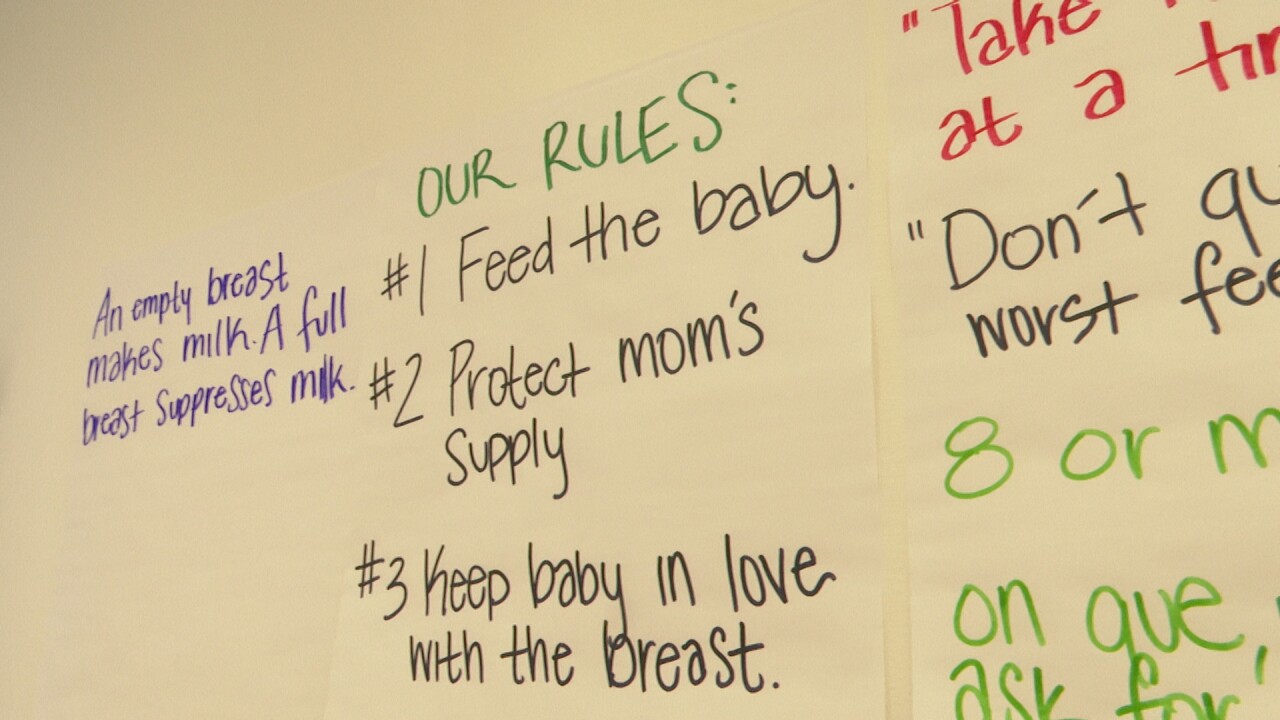 An empty breast
makes milk. A full
breast suppresses milk.
OUR RULES:
#1 Feed the baby.
#2 Protect mom's
supply
#3 Keep baby in love
with the breast.
"Take
at a
"Don't
worst
8 or
on que,
ask for